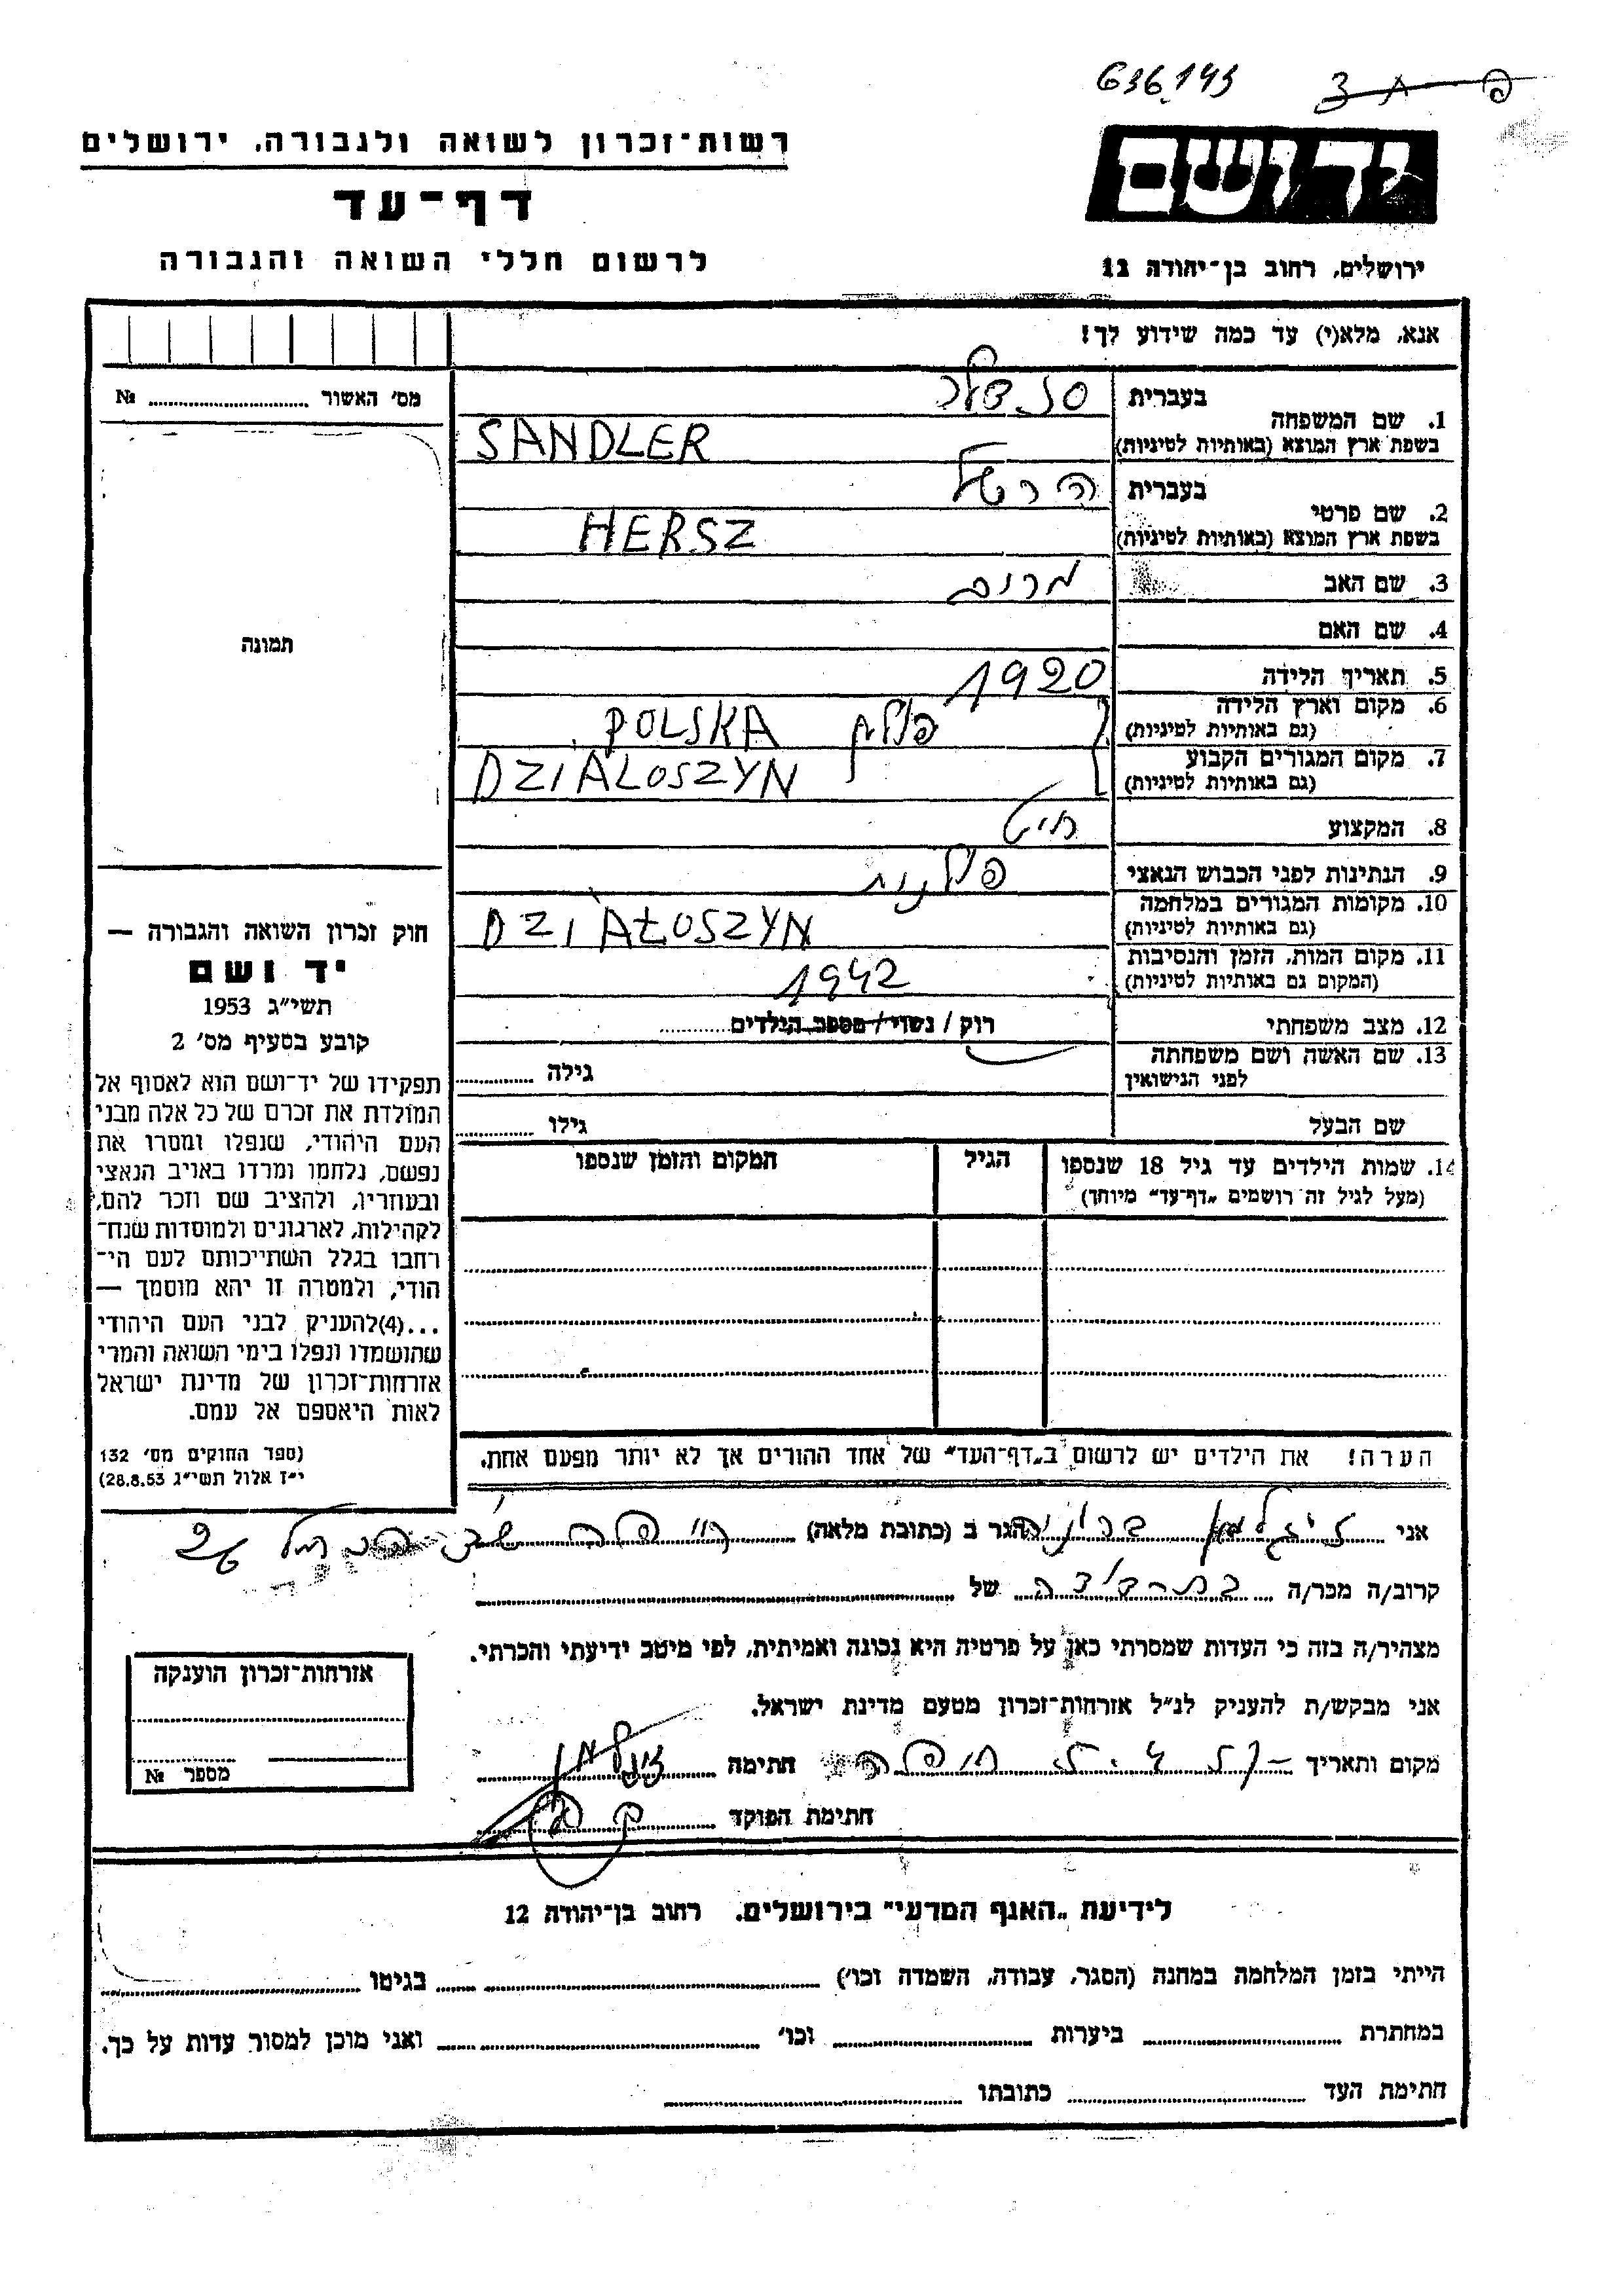 636.143
רשות־זכרון לשואה ולגבורה, ירושלים
דף־עד
לרשום חללי השואה והגבורה
יד ושם
ירושלים, רחוב בן־יהודה 12
אנא, מלא(י) עד כמה שידוע לך!
מס׳ האשור № 
תמונה
1. שם המשפחה
בעברית סנדלר
בשפת ארץ המוצא (באותיות לטיניות) SANDLER
2. שם פרטי
בעברית הרשל
בשפת ארץ המוצא (באותיות לטיניות) HERSZ
3. שם האב
4. שם האם
5. תאריך הלידה 1920
6. מקום וארץ הלידה
(גם באותיות לטיניות) פולין POLSKA
7. מקום המגורים הקבוע
(גם באותיות לטיניות) DZIALOSZYN
8. המקצוע חייט
9. הנתינות לפני הכבוש הנאצי פולנית
10. מקומות המגורים במלחמה
(גם באותיות לטיניות) DZIAŁOSZYN
11. מקום המות, הזמן והנסיבות
(המקום גם באותיות לטיניות) 1942
12. מצב משפחתי רוק / נשוי / מספר הילדים
13. שם האשה ושם משפחתה
לפני הנישואין גילה
שם הבעל גילו
14. שמות הילדים עד גיל 18 שנספו
(מעל לגיל זה רושמים „דף־עד״ מיוחד)
הגיל
המקום והזמן שנספו
חוק זכרון השואה והגבורה —
יד ושם
תשי״ג 1953
קובע בסעיף מס׳ 2
תפקידו של יד־ושם הוא לאסוף אל
המולדת את זכרם של כל אלה מבני
העם היהודי, שנפלו ומסרו את
נפשם, נלחמו ומרדו באויב הנאצי
ובעוזריו, ולהציב שם וזכר להם,
לקהילות, לארגונים ולמוסדות שנח־
רחבו בגלל השתייכותם לעם הי־
הודי, ולמטרה זו יהא מוסמך —
...(4)להעניק לבני העם היהודי
שהושמדו ונפלו בימי השואה והמרי
אזרחות־זכרון של מדינת ישראל
לאות היאספם אל עמם.
(ספר החוקים מס׳ 132
י״ז אלול תשי״ג 28.8.53)
הערה! את הילדים יש לרשום ב„דף־העד״ של אחד ההורים אך לא יותר מפעם אחת.
אני זיגלמן ברוניה הגר ב (כתובת מלאה) חיפה 26
קרוב/ה מכר/ה בת דודה של
מצהיר/ה בזה כי העדות שמסרתי כאן על פרטיה היא נכונה ואמיתית, לפי מיטב ידיעתי והכרתי.
אני מבקש/ת להעניק לנ״ל אזרחות־זכרון מטעם מדינת ישראל.
מקום ותאריך חיפה חתימה
חתימת הפוקד
אזרחות־זכרון הוענקה
מספר №
לידיעת „האגף המדעי״ בירושלים, רחוב בן־יהודה 12
הייתי בזמן המלחמה במחנה (הסגר, עבודה, השמדה וכו׳) בגיטו
במחתרת ביערות וכו׳ ואני מוכן למסור עדות על כך.
חתימת העד כתובתו